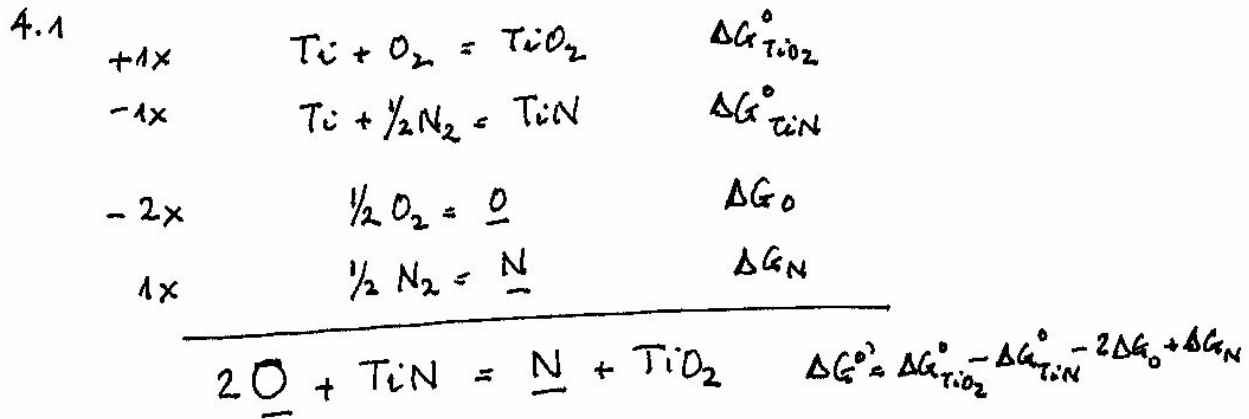 4.1
+1x Ti + O₂ = TiO₂ ΔG°TiO₂
-1x Ti + ½N₂ = TiN ΔG°TiN
- 2x ½ O₂ = O̲ ΔGO
1x ½ N₂ = N̲ ΔGN
2O̲ + TiN = N̲ + TiO₂ ΔG°= ΔG°TiO₂ - ΔG°TiN - 2ΔGO + ΔGN